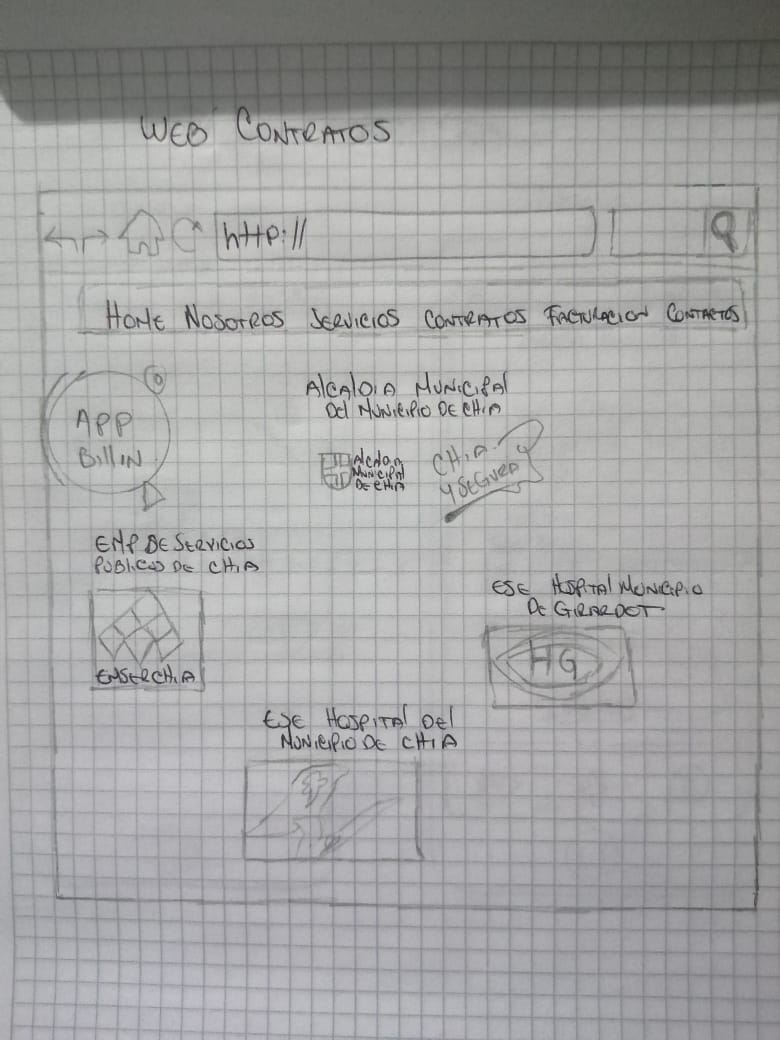 WEB CONTRATOS
http://
HOME NOSOTROS SERVICIOS CONTRATOS FACTURACION CONTACTOS
APP
BillIN
AlCAlDIA MUNICIPAl
DEl MUNICIPIO DE CHIA
AlCALDIA
MUNICIPAl
DE CHIA
CHIA
Y SEGURA
EMP DE SERVICIOS
PUBLICOS DE CHIA
EMSERCHIA
ESE HOSPITAl MUNICIPIO
DE GIRARDOT
HG
ESE HOSPITAl DEl
MUNICIPIO DE CHIA